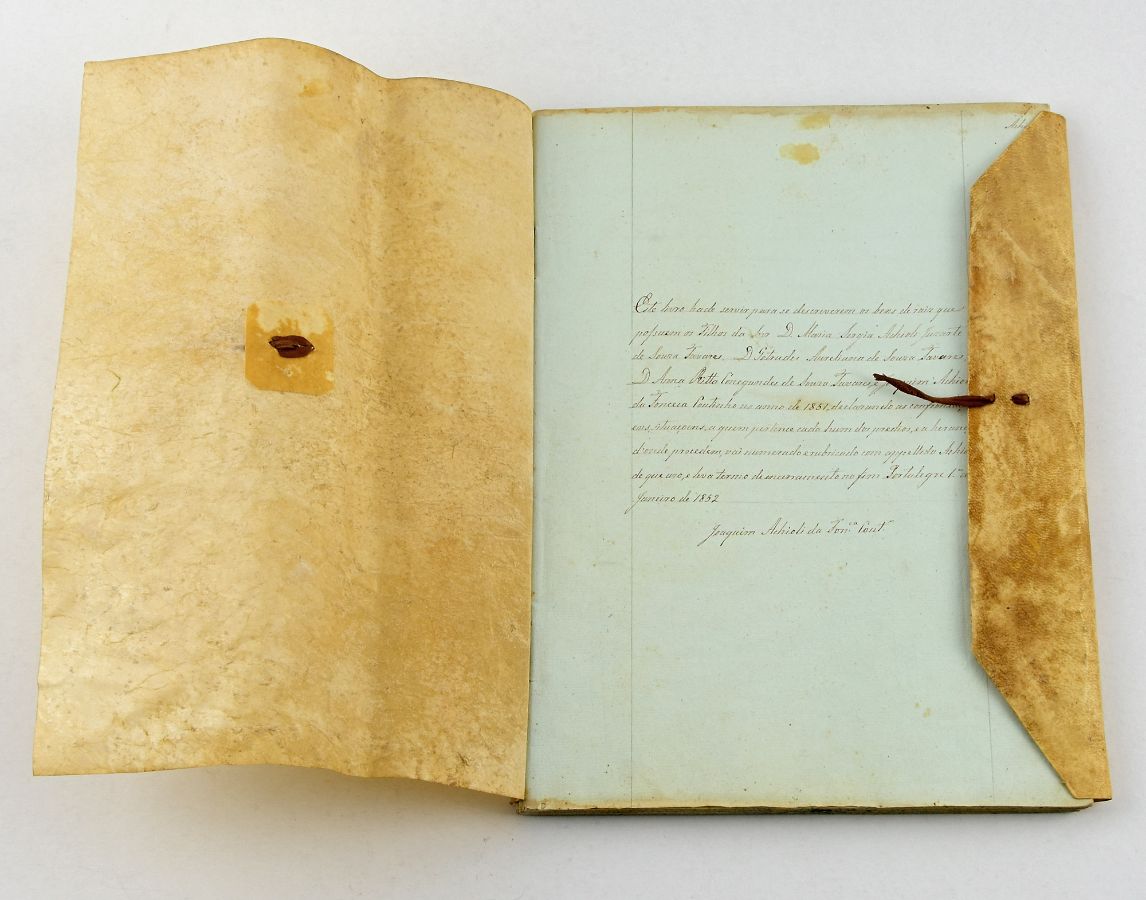 Achi
Este livro hade servir para se descreverem os bens de raiz que
possuem os Filhos da Snr.ª D. Maria Sergia Achioli Juzarte
de Souza Tavares, D. Getrudes Aureliana de Souza Tavares,
D. Anna Ritta Conegundes de Souza Tavares, e Joaquim Achioli
da Fonceca Coutinho no anno de 1851, declarando as
situaçoens, a quem pertence cada hum dos predios, e a
d'onde procedem, vai numerado e rubricado com appellido Achioli
de que uzo, e leva termo de encerramento no fim Portalegre 1.º
Janeiro de 1852
Joaquim Achioli da Fon.ca Cout.º